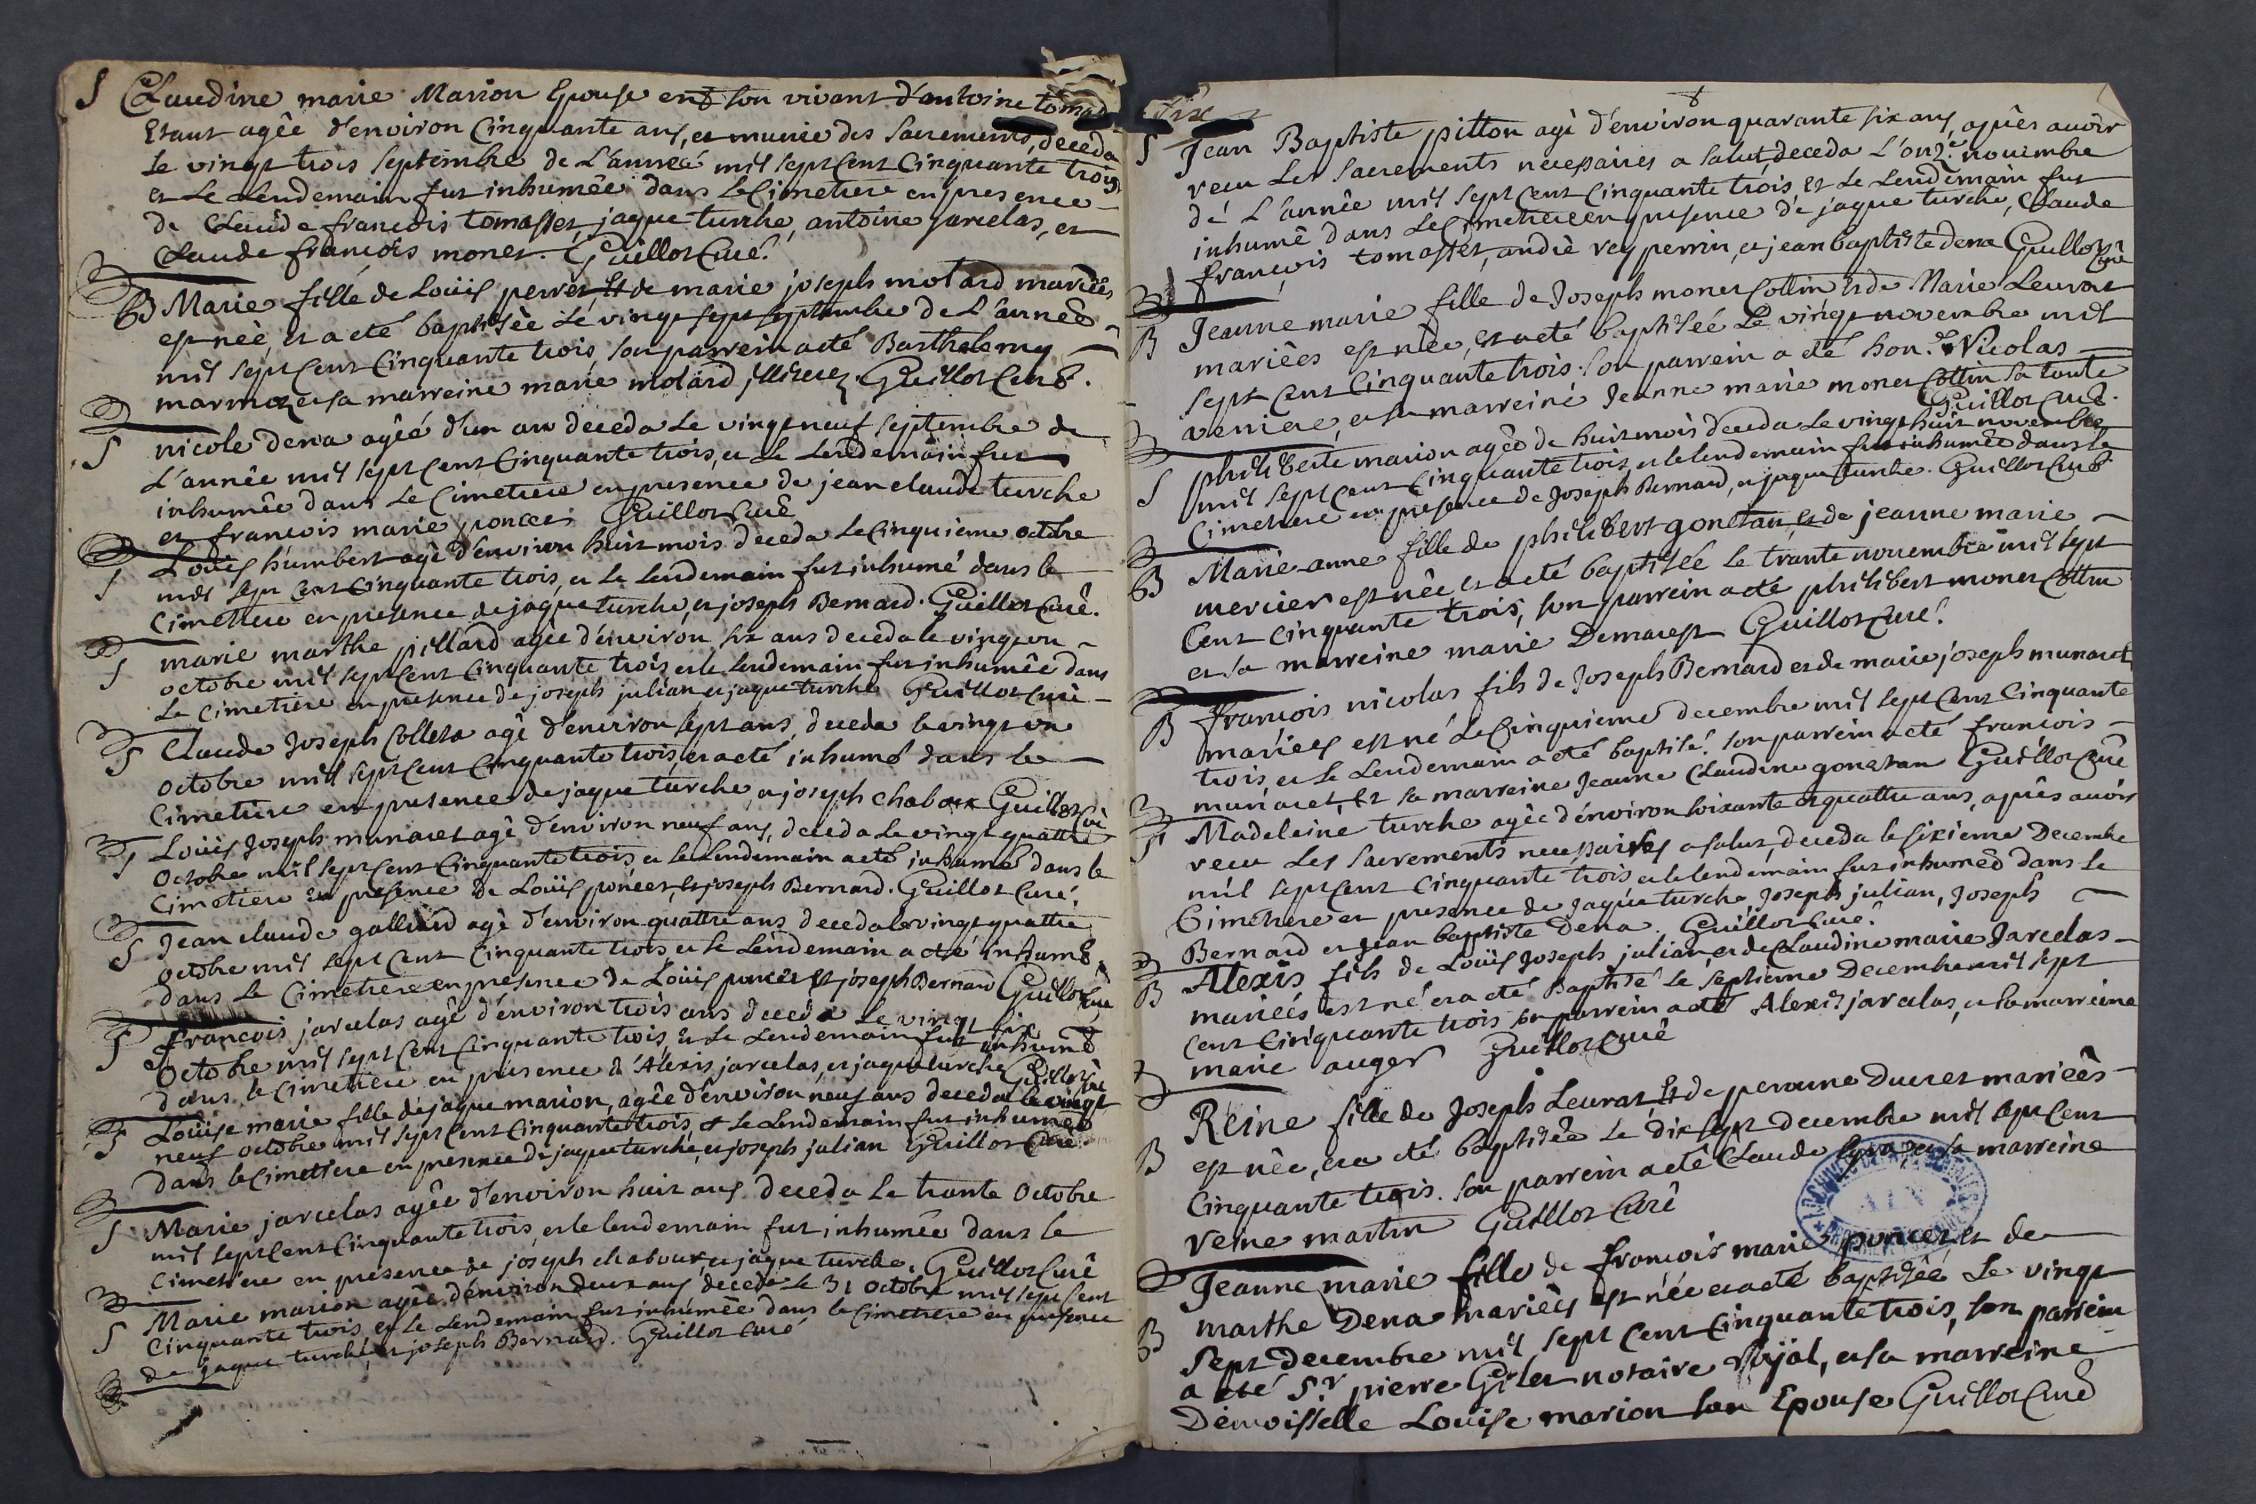 S Claudine marie Marion Epouse en son vivant d'antoine tomas
Etant agêe d'environ Cinquante ans, et munie des Sacrements, deceda
le vingt trois septembre de L'année mil sept Cent Cinquante trois
et Le Lendemain fut inhumêe dans Le Cimetiere en presence
de Claude françois tomasset, jaque turche, antoine jarcelas, et
Claude françois monet. Guillot Curé
B Marie fille de Loüis perret Et de marie joseph molard mariées
est née, et a eté baptisêe Le vingt sept septembre de L'année
mil sept Cent Cinquante trois, son parrein a eté Barthelemy
marmoz et sa marreine marie molard illiterez. Guillot Curé.
S nicole dena agêé d'un an deceda Le vingt neuf septembre de
L'année mil sept cent Cinquante trois, et Le Lendemain fut
inhumêe dans Le Cimetiere en presence de jean claude turche
et francois marie poncet. Guillot Curé
S Loüis humbert agé d'environ huit mois deceda Le Cinquieme octobre
mil sept Cent Cinquante trois, et Le Lendemain fut inhumé dans le
Cimetiere en presence de jaque turche, et joseph Bernard. Guillot Curé.
S marie marthe pillard agêe d'environ six ans deceda le vingt un
octobre mil sept Cent Cinquante trois et le lendemain fut inhumêe dans
Le Cimetiere en presence de joseph julian et jaque turche Guillot Curé
S Claude Joseph Colleta agé d'environ sept ans, deceda le vingt un
octobre mil sept Cent Cinquante trois, et a eté inhumé dans le
Cimetiere en presence de jaque turche et joseph chaboux Guillot Curé
S Loüis Joseph munaret agé d'environ neuf ans, deceda Le vingt quattre
Octobre mil sept Cent Cinquante trois et le Lendemain a eté inhumé dans le
Cimetiere en presence de Loüis poncet, et joseph Bernard. Guillot Curé.
S Jean claude galliard agé d'environ quattre ans deceda Le vingt quattre
octobre mil sept Cent Cinquante trois et Le Lendemain a eté inhumé
dans Le Cimetiere en presence de Loüis poncet et joseph Bernard Guillot Curé
S François jarcelas agé d'environ trois ans deceda Le vingt six
Octobre mil sept Cent Cinquante trois, Et Le Lendemain fut inhumé
dans le Cimetiere en presence d'Alexis jarcelas, et jaque turche Guillot Curé
S Loüise marie fille de jaque marion, agêe d'environ neuf ans deceda Le vingt
neuf octobre mil sept Cent Cinquante trois, et Le Lendemain fut inhumêe
dans le Cimetiere en presence de jaque turche, et joseph julian Guillot Curé
S Marie jarcelas agêe d'environ huit ans deceda Le trante Octobre
mil sept Cent Cinquante trois, et le lendemain fut inhumêe dans le
Cimetiere en presence de joseph chaboux et jaque turche. Guillot Curé
S Marie marion agêe d'environ deux ans deceda le 31 octobre mil sept Cent
Cinquante trois, et Le Lendemain fut inhumêe dans le Cimetiere en presence
de jaque turche, et joseph Bernard. Guillot Curé
S Jean Baptiste pitton agé d'environ quarante six ans, après avoir
recu Les Sacrements necessaires a salut, deceda L'onze novembre
de L'année mil sept Cent Cinquante trois et Le Lendemain fut
inhumé dans Le Cimetiere en presence de jaque turche, Claude
françois tomasset, andré reyperrin, et jean baptiste dena Guillot Curé
B Jeanne marie fille de Joseph monet Collin et de Marie Leurat
mariées est née, et a eté baptisêé Le vingt novembre mil
sept Cent Cinquante trois. Son parrein a eté hon. Nicolas
veniere, et sa marreine Jeanne marie monet Collin sa tante
Guillot Curé.
S philiberte marion agêe de huit mois deceda Le vingt huit novembre
mil sept Cent Cinquante trois, et le lendemain fut inhumêe dans Le
Cimetiere en presence de Joseph Bernard, et jaque turche. Guillot Curé
B Marie anne fille de philibert gonetan, et de jeanne marie
mercier est née, et a eté baptisêe le trante novembre mil sept
Cent Cinquante trois, son parrein a eté philibert monet Collin
et sa marreine marie Demarest Guillot Curé.
B François nicolas fils de Joseph Bernard et de marie joseph munaret
mariées est né Le Cinquieme decembre mil sept Cent Cinquante
trois, et le Lendemain a eté baptisé. Son parrein a eté françois
munaret, Et sa marreine Jeanne Claudine gonetan Guillot Curé
S Madeleine turche agêe d'environ soixante et quattre ans, après avoir
recu Les Sacrements necessaires a salut, deceda le sixieme Decembre
mil sept Cent Cinquante trois et le lendemain fut inhumêe dans le
Cimetiere en presence de Jaque turche, Joseph julian, Joseph
Bernard et Jean baptiste Dena. Guillot Curé.
B Alexis fils de Loüis Joseph julian et de Claudine marie Jarcelas
mariées est né et a eté Baptisé le septieme Decembre mil sept
cent Cinquante trois son parrein a eté Alexis jarcelas, et sa marreine
marie auger Guillot Curé
B Reine fille de Joseph Leurat Et de peronne Ducret mariêês
est née, et a eté baptisêe Le dix sept decembre mil sept Cent
Cinquante trois. Son parrein a eté Claude et sa marreine
reine martin Guillot Curé
B Jeanne marie fille de françois marie poncet et de
marthe Dena mariées est née et a eté baptisêe Le vingt
Sept decembre mil sept Cent Cinquante trois, son parrein
a eté Sr pierre Girlet notaire Royal, et sa marreine
Demoisselle Louise marion son Epouse Guillot Curé